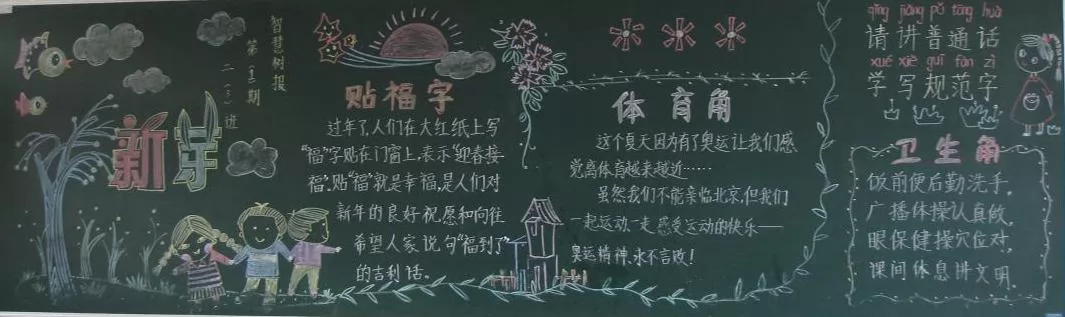 智慧树报
第(1)期
二(3)班
新芽
贴福字
过年了,人们在大红纸上写
“福”字贴在门窗上,表示“迎春接
福”。贴“福”就是幸福,是人们对
新年的良好祝愿和向往
希望人家说句“福到了”
的吉利话。
体育角
这个夏天因为有了奥运让我们感
觉离体育越来越近……
虽然我们不能亲临北京,但我们
一起运动,一走感受运动的快乐——
奥运精神,永不言败!
qǐng jiǎng pǔ tōng huà
请讲普通话
xué xiě guī fàn zì
学写规范字
卫生角
饭前便后勤洗手,
广播体操认真做,
眼保健操穴位对,
课间休息讲文明。